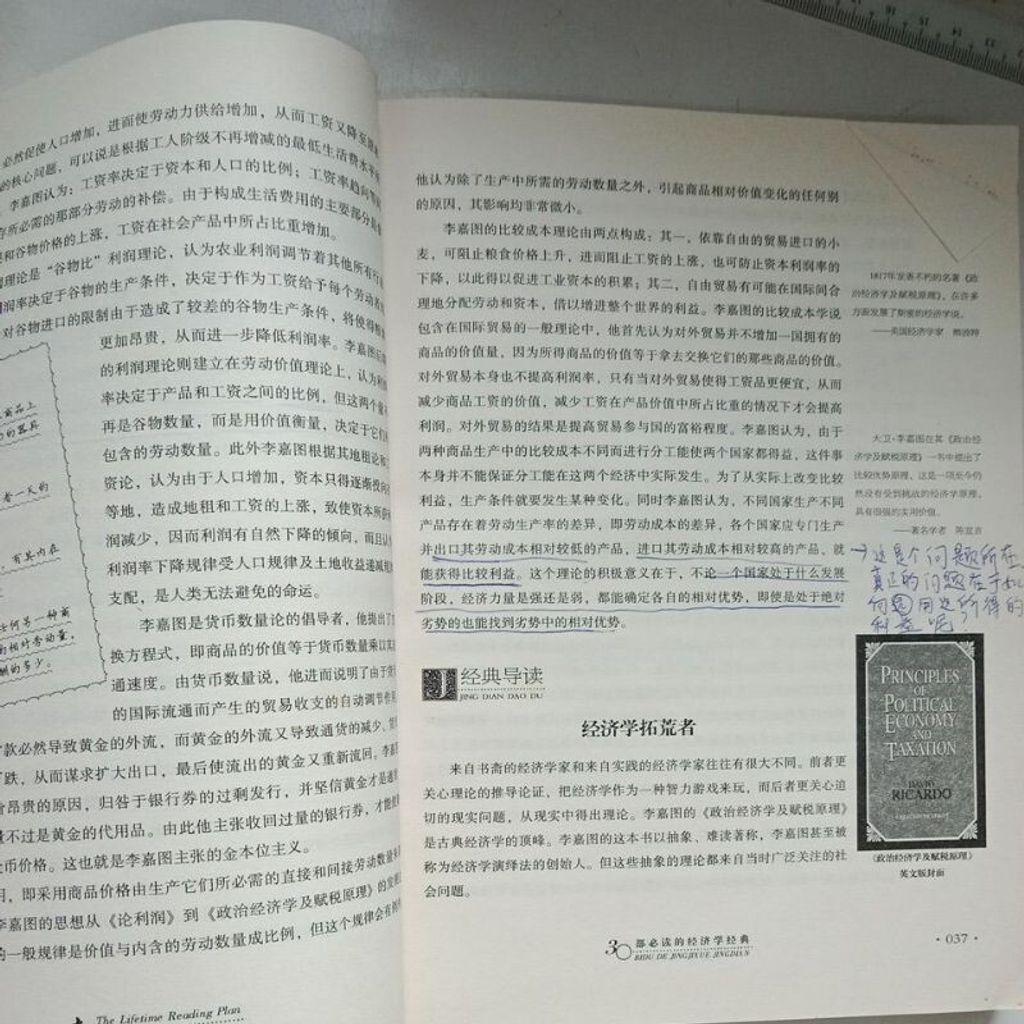 必然促使人口增加，进而使劳动力供给增加，从而工资又降至
的核心问题，可以说是根据工人阶级不再增减的最低生活费水平
李嘉图认为：工资率决定于资本和人口的比例；工资率趋向
存所必需的那部分劳动的补偿。由于构成生活费用的主要部分
和谷物价格的上涨，工资在社会产品中所占比重增加。
理论是“谷物比”利润理论，认为农业利润调节着其他所有行
润率决定于谷物的生产条件，决定于作为工资给予每个劳动
对谷物进口的限制由于造成了较差的谷物生产条件，将使得
更加昂贵，从而进一步降低利润率。李嘉图
的利润理论则建立在劳动价值理论上，认为
率决定于产品和工资之间的比例，但这两个量
再是谷物数量，而是用价值衡量，决定于它们
包含的劳动数量。此外李嘉图根据其地租论和
资论，认为由于人口增加，资本只得逐渐投向
等地，造成地租和工资的上涨，致使资本所
润减少，因而利润有自然下降的倾向，而且
利润率下降规律受人口规律及土地收益递减规
支配，是人类无法避免的命运。
商品上
的器具
者一天的
，有其内在
任何另一种商
的相对劳动量，
酬的多少。
李嘉图是货币数量论的倡导者，他提出了
换方程式，即商品的价值等于货币数量乘以其
通速度。由货币数量说，他进而说明了由于货
的国际流通而产生的贸易收支的自动调节作
款必然导致黄金的外流，而黄金的外流又导致通货的减少、
下跌，从而谋求扩大出口，最后使流出的黄金又重新流回。李嘉
昂贵的原因，归咎于银行券的过剩发行，并坚信黄金才是通
量不过是黄金的代用品。由此他主张收回过量的银行券，才能
币价格。这也就是李嘉图主张的金本位主义。
，即采用商品价格由生产它们所必需的直接和间接劳动数量
李嘉图的思想从《论利润》到《政治经济学及赋税原理》的发
的一般规律是价值与内含的劳动数量成比例，但这个规律会有
The Lifetime Reading Plan
他认为除了生产中所需的劳动数量之外，引起商品相对价值变化的任何别
的原因，其影响均非常微小。
李嘉图的比较成本理论由两点构成：其一，依靠自由的贸易进口的小
麦，可阻止粮食价格上升，进而阻止工资的上涨，也可防止资本利润率的
下降，以此得以促进工业资本的积累；其二，自由贸易有可能在国际间合
理地分配劳动和资本，借以增进整个世界的利益。李嘉图的比较成本学说
包含在国际贸易的一般理论中，他首先认为对外贸易并不增加一国拥有的
商品的价值量，因为所得商品的价值等于拿去交换它们的那些商品的价值。
对外贸易本身也不提高利润率，只有当对外贸易使得工资品更便宜，从而
减少商品工资的价值，减少工资在产品价值中所占比重的情况下才会提高
利润。对外贸易的结果是提高贸易参与国的富裕程度。李嘉图认为，由于
两种商品生产中的比较成本不同而进行分工能使两个国家都得益，这件事
本身并不能保证分工能在这两个经济中实际发生。为了从实际上改变比较
利益，生产条件就要发生某种变化。同时李嘉图认为，不同国家生产不同
产品存在着劳动生产率的差异，即劳动成本的差异，各个国家应专门生产
并出口其劳动成本相对较低的产品，进口其劳动成本相对较高的产品，就
能获得比较利益。这个理论的积极意义在于，不论一个国家处于什么发展
阶段，经济力量是强还是弱，都能确定各自的相对优势，即使是处于绝对
劣势的也能找到劣势中的相对优势。
1817年发表不朽的名著《政
治经济学及赋税原理》，在许多
方面发展了斯密的经济学说。
——美国经济学家
大卫·李嘉图在其《政治经
济学及赋税原理》一书中提出了
比较优势原理，这是一项至今仍
然没有受到挑战的经济学原理，
具有很强的实用价值。
——著名学者
→这是个问题所在
真正的问题在于如
何 同
利益呢
J 经典导读
JING DIAN DAO DU
经济学拓荒者
来自书斋的经济学家和来自实践的经济学家往往有很大不同。前者更
关心理论的推导论证，把经济学作为一种智力游戏来玩，而后者更关心迫
切的现实问题，从现实中得出理论。李嘉图的《政治经济学及赋税原理》
是古典经济学的顶峰。李嘉图的这本书以抽象、难读著称，李嘉图甚至被
称为经济学演绎法的创始人。但这些抽象的理论都来自当时广泛关注的社
会问题。
PRINCIPLES
OF
POLITICAL
ECONOMY
AND
TAXATION
DAVID
RICARDO
《政治经济学及赋税原理》
英文版封面
30 部必读的经济学经典
BIDU DE JINGJIXUE JINGDIAN
·037·